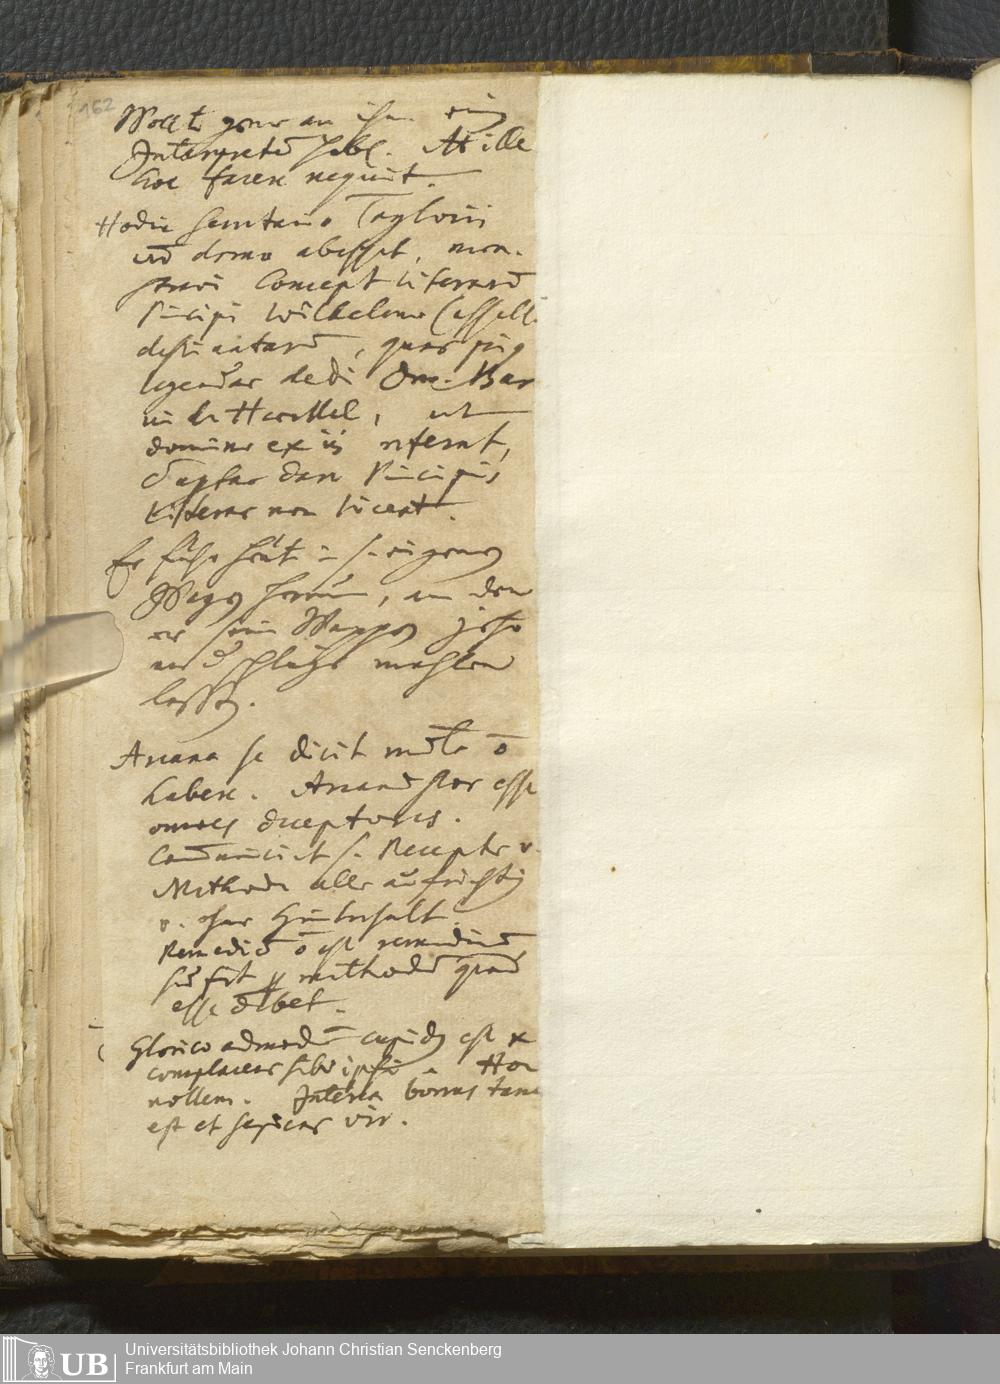 162
Wollte gerne an ihm einen
Interpretem haben. At ille
hoc facere nequit.
Hodie Taylorii
cum domo abesset, mon-
stravi Concept literarum
Principi Wilhelmo Cassell.
destinatarum, quas
legendas dedi Dno. Bar
ut
dominus ex iis referat,
dare Principis
literas non liceat.
Er fuhr heute in s. eigenen
Wagen herum, an den
er sein Wappen
mahlen
lassen.
Arcana se dicit multa
habere. Arcan esse
omnes deceptores.
Communicirt s. Recepte v.
Methode alle aufrichtig
v. ohne Hinterhalt.
Remedium est remedium,
fit methodum quam
esse debet.
admodum cupidus est &
complacens sibi ipsi. Hoc
nollem. Interea bonus tamen
est et sapiens vir.
UB
Universitätsbibliothek Johann Christian Senckenberg
Frankfurt am Main